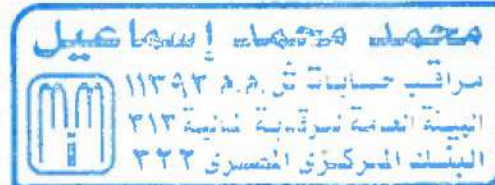 محمد محمد إسماعيل
مراقب حسابات س.م.م ١١٣٩٣
الهيئة العامة للرقابة المالية ٣١٣
البنك المركزى المصرى ٣٢٢